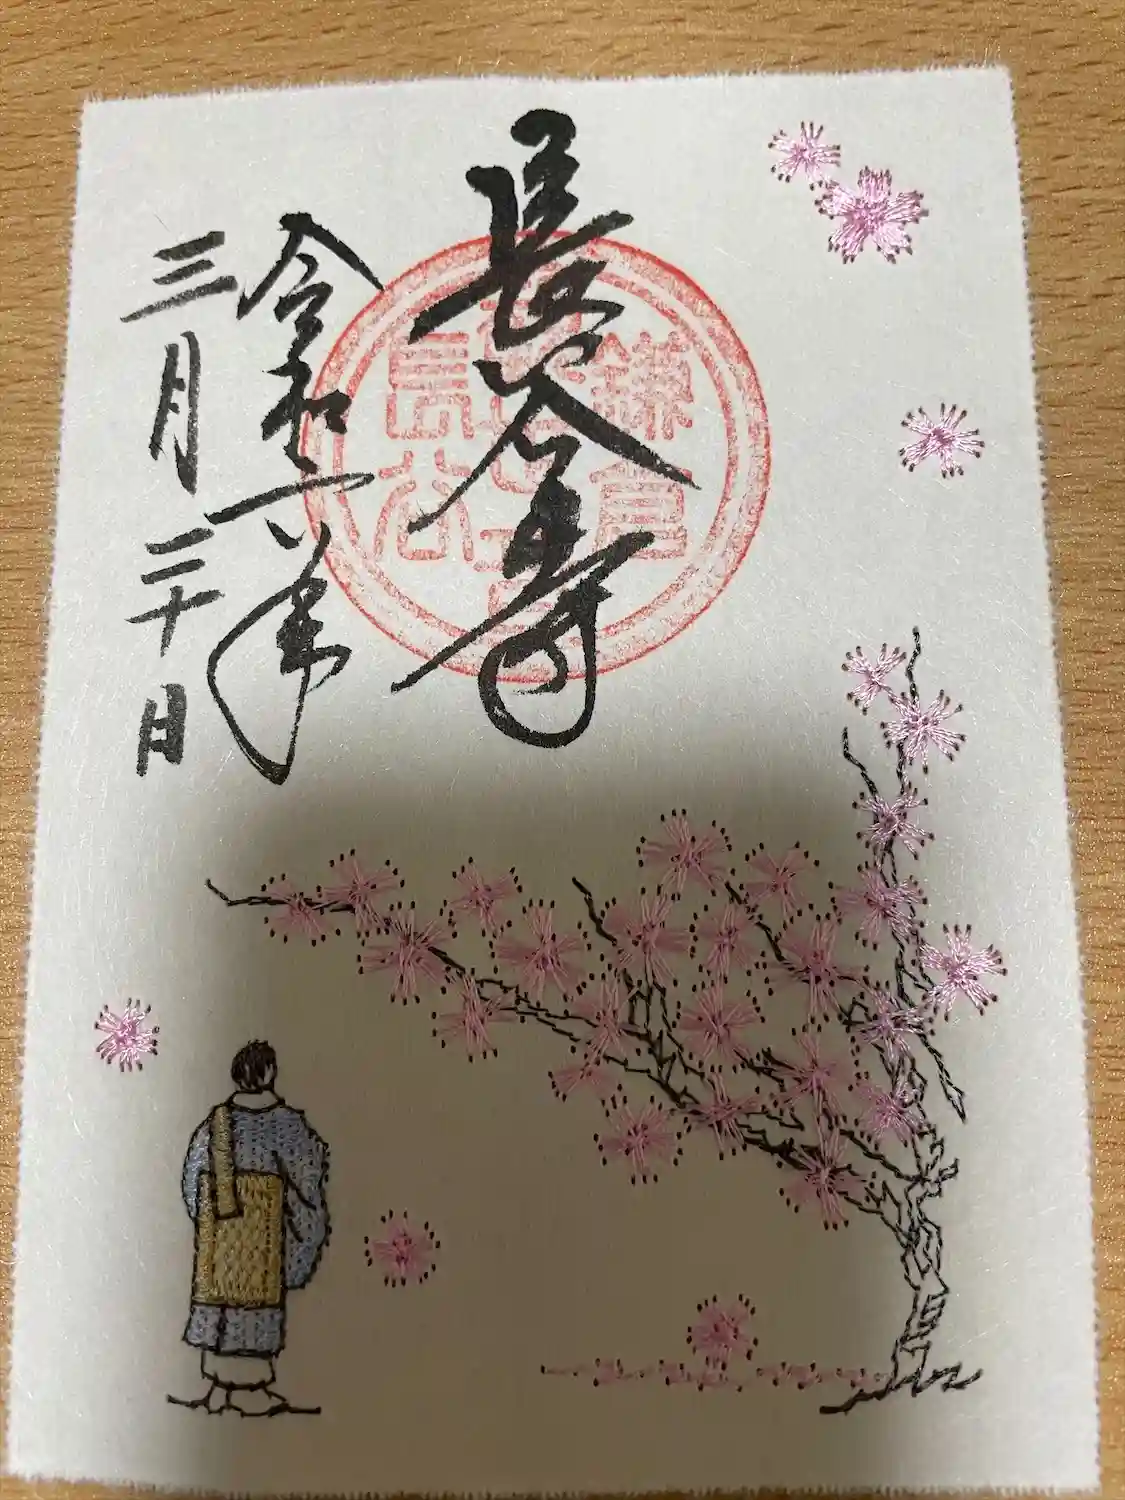 長谷寺
令和六年
三月二十日
鎌倉
長谷